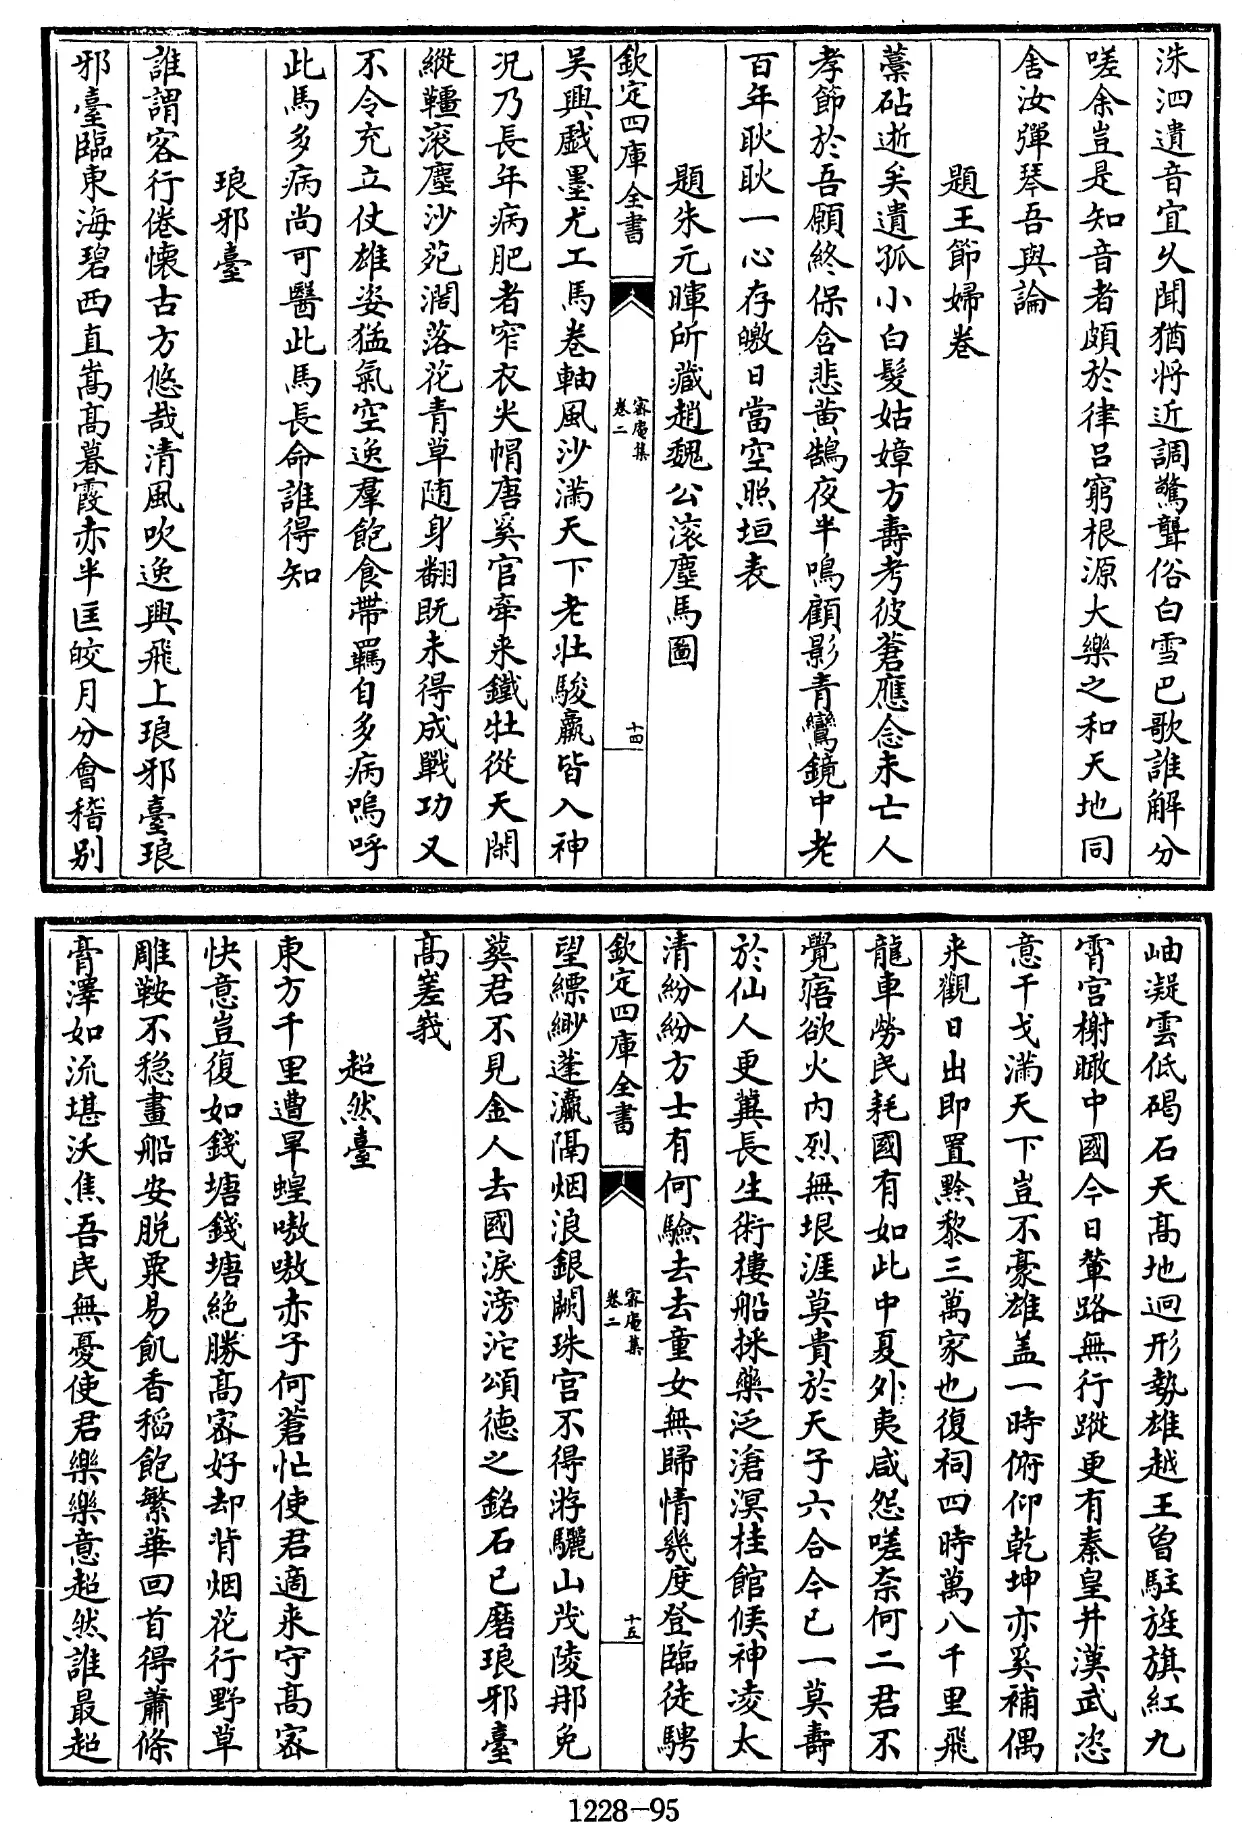 洙泗遺音宜乆聞猶将近調驚聾俗白雪巴歌誰解分
嗟余豈是知音者頗於律吕窮根源大樂之和天地同
舍汝彈琴吾與論
題王節婦卷
藁砧逝矣遺孤小白髮姑嫜方壽考彼蒼應念未亡人
孝節於吾願終保含悲黄鵠夜半鳴顧影青鸞鏡中老
百年耿耿一心存皦日當空照垣表
題朱元暉所藏趙魏公滚塵馬圖
欽定四庫全書
寗庵集
卷二
十四
吴興戲墨尤工馬卷軸風沙滿天下老壯駿羸皆入神
況乃長年病肥者窄衣尖帽唐奚官牽来鐵牡從天閑
縱韁滚塵沙苑濶落花青草随身翻既未得成戰功又
不令充立仗雄姿猛氣空逸羣飽食帶羈自多病嗚呼
此馬多病尚可醫此馬長命誰得知
琅邪臺
誰謂客行倦懐古方悠哉清風吹逸興飛上琅邪臺琅
邪臺臨東海碧西直嵩髙暮霞赤半匡皎月分會稽别
岫凝雲低碣石天髙地迥形勢雄越王曽駐旌旗紅九
霄宫榭瞰中國今日輦路無行蹤更有秦皇并漢武恣
意干戈滿天下豈不豪雄盖一時俯仰乾坤亦奚補偶
来觀日出即置黔黎三萬家也復祠四時萬八千里飛
龍車勞民耗國有如此中夏外夷咸怨嗟奈何二君不
覺寤欲火内烈無垠涯莫貴於天子六合今已一莫壽
於仙人更冀長生術樓船採藥泛滄溟桂館候神凌太
清紛紛方士有何驗去去童女無歸情幾度登臨徒騁
欽定四庫全書
寗庵集
卷二
十五
望縹緲蓬瀛隔烟浪銀闕珠宫不得游驪山茂陵那免
葬君不見金人去國淚滂沱頌德之銘石已磨琅邪臺
髙嵳峩
超然臺
東方千里遭旱蝗嗷嗷赤子何蒼忙使君適来守髙密
快意豈復如錢塘錢塘絶勝髙密好却背烟花行野草
雕鞍不稳畫船安脱粟易飢香稻飽繁華回首得蕭條
膏澤如流堪沃焦吾民無憂使君樂樂意超然誰最超
1228-95